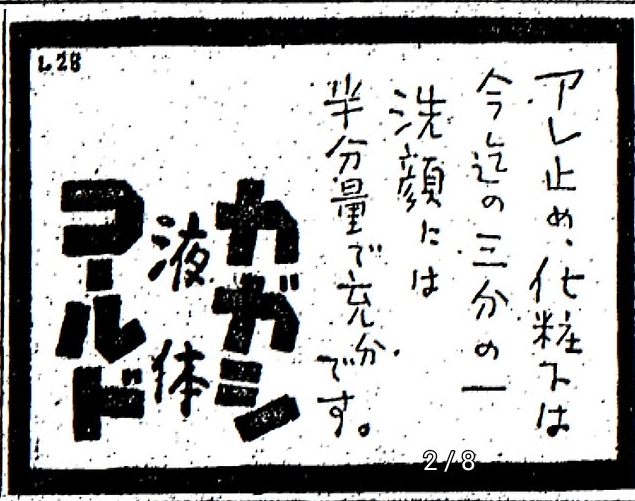 アレ止め、化粧下は
今迄の三分の一
洗顔には
半分量で充分
です。
カガシ
液体
コールド
L28
2/8